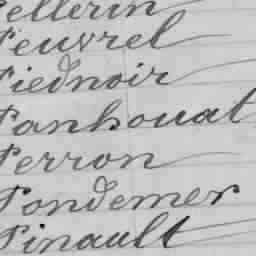 Pellerin
Peuvrel
Piednoir
Panhouat
Perron
Pondemer
Pinault